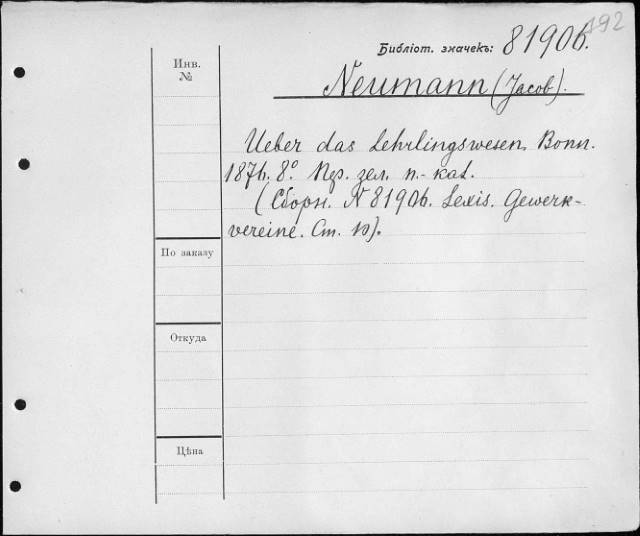 192
Библіот. значекъ: 81906.
Инв.
№
Neumann (Jacob).
Ueber das Lehrlingswesen. Bonn.
1876. 8º. Пер. зел. п.-кал.
(Сборн. N 81906. Lexis. Gewerk-
vereine. Ст. 10).
По заказу
Откуда
Цѣна